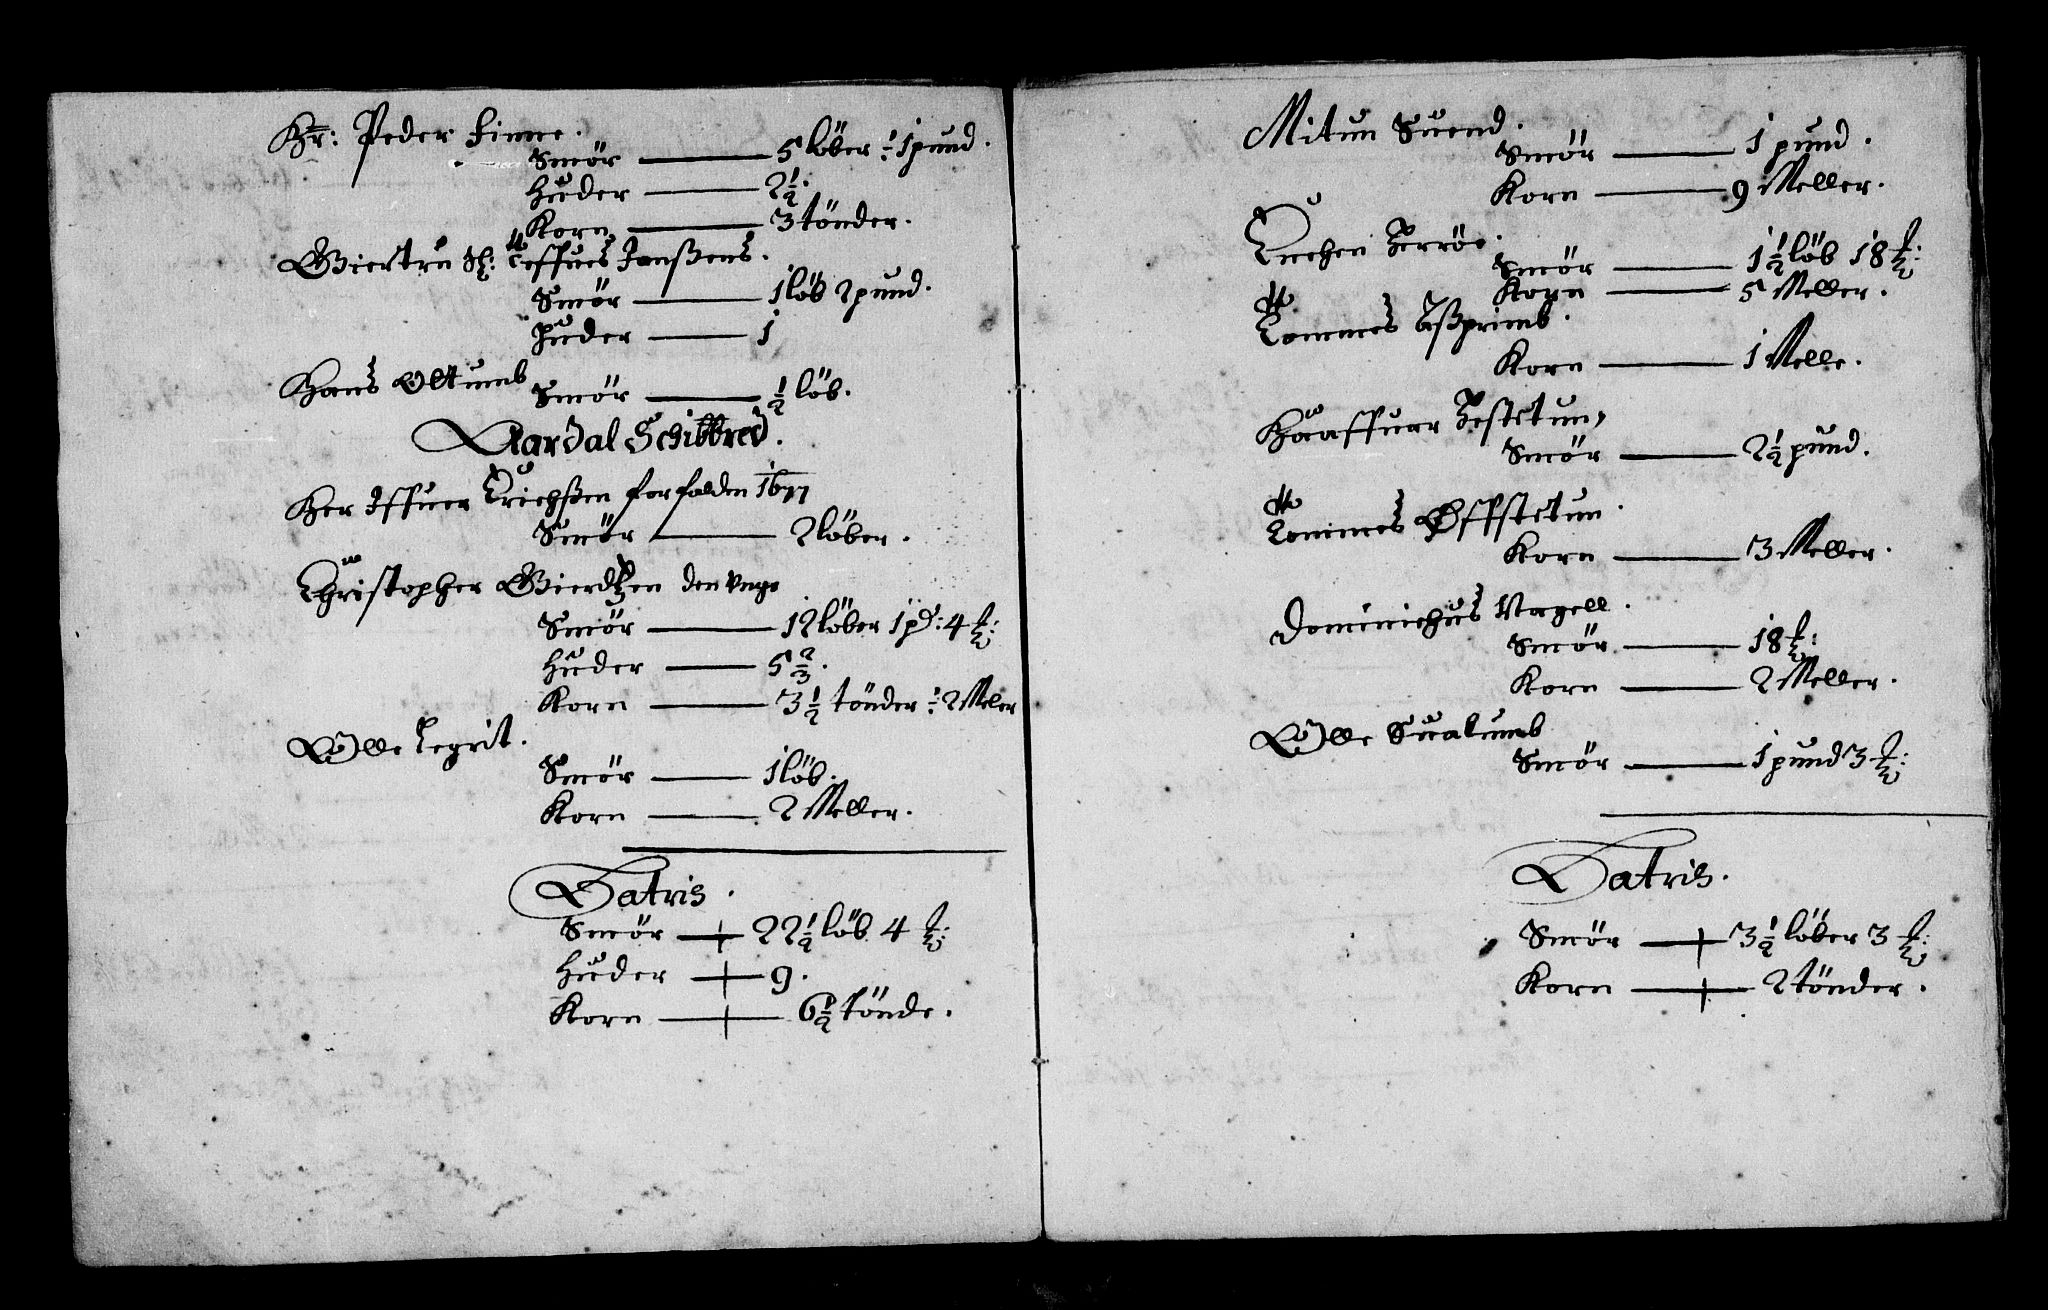 Hr: Peder Finne.
Smör — 5 löber ÷ 1 pund.
Huder — 2 1/2.
Korn — 3 tönder.
Giertru Sl: Jenssens.
Smör — 1 löb 2 pund.
Huder — 1
Hans Oltumb
Smör — 1/2 löb.
Aardal Schibbred.
Her Iffuer Erichßen forfalden 1677
Smör — 2 löber.
Christopher Gierdtzen den unge
Smör — 12 löber 1 pd: 4 ℔:
Huder — 5 2/3.
Korn — 3 1/2 tönder ÷ 2 Meler
Olle Legrit.
Smör — 1 löb.
Korn — 2 Meller.
Latris.
Smör — 22 1/2 löb 4 ℔:
Huder — 9.
Korn — 6 1/2 tönde.
Mitun Suend.
Smör — 1 pund.
Korn — 9 Meller.
Smör — 1 1/2 löb 18 ℔
Korn — 5 Meller.
Tommes
Korn — 1 Melle.
Haaffuar Testetun,
Smör — 2 1/2 pund.
Tommes Øffstetun.
Korn — 3 Meller.
Dominichus Nagell.
Smör — 18 ℔:
Korn — 2 Meller.
Olle Sualumb
Smör — 1 pund 3 ℔:
Latris.
Smör — 3 1/2 löber 3 ℔:
Korn — 2 tönder.